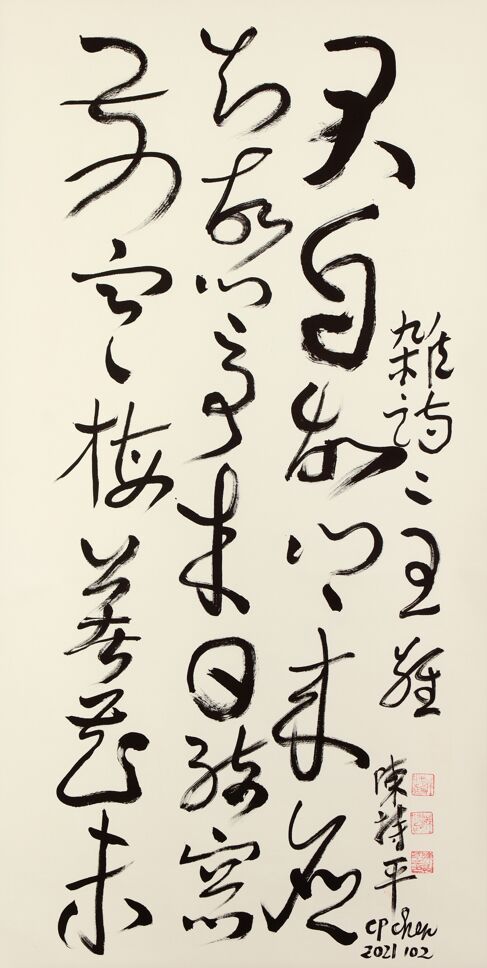 雜詩二王維
陳持平
CP Chen
2021 102
君自故鄉來應
知故鄉事來日綺窗
前寒梅著花未